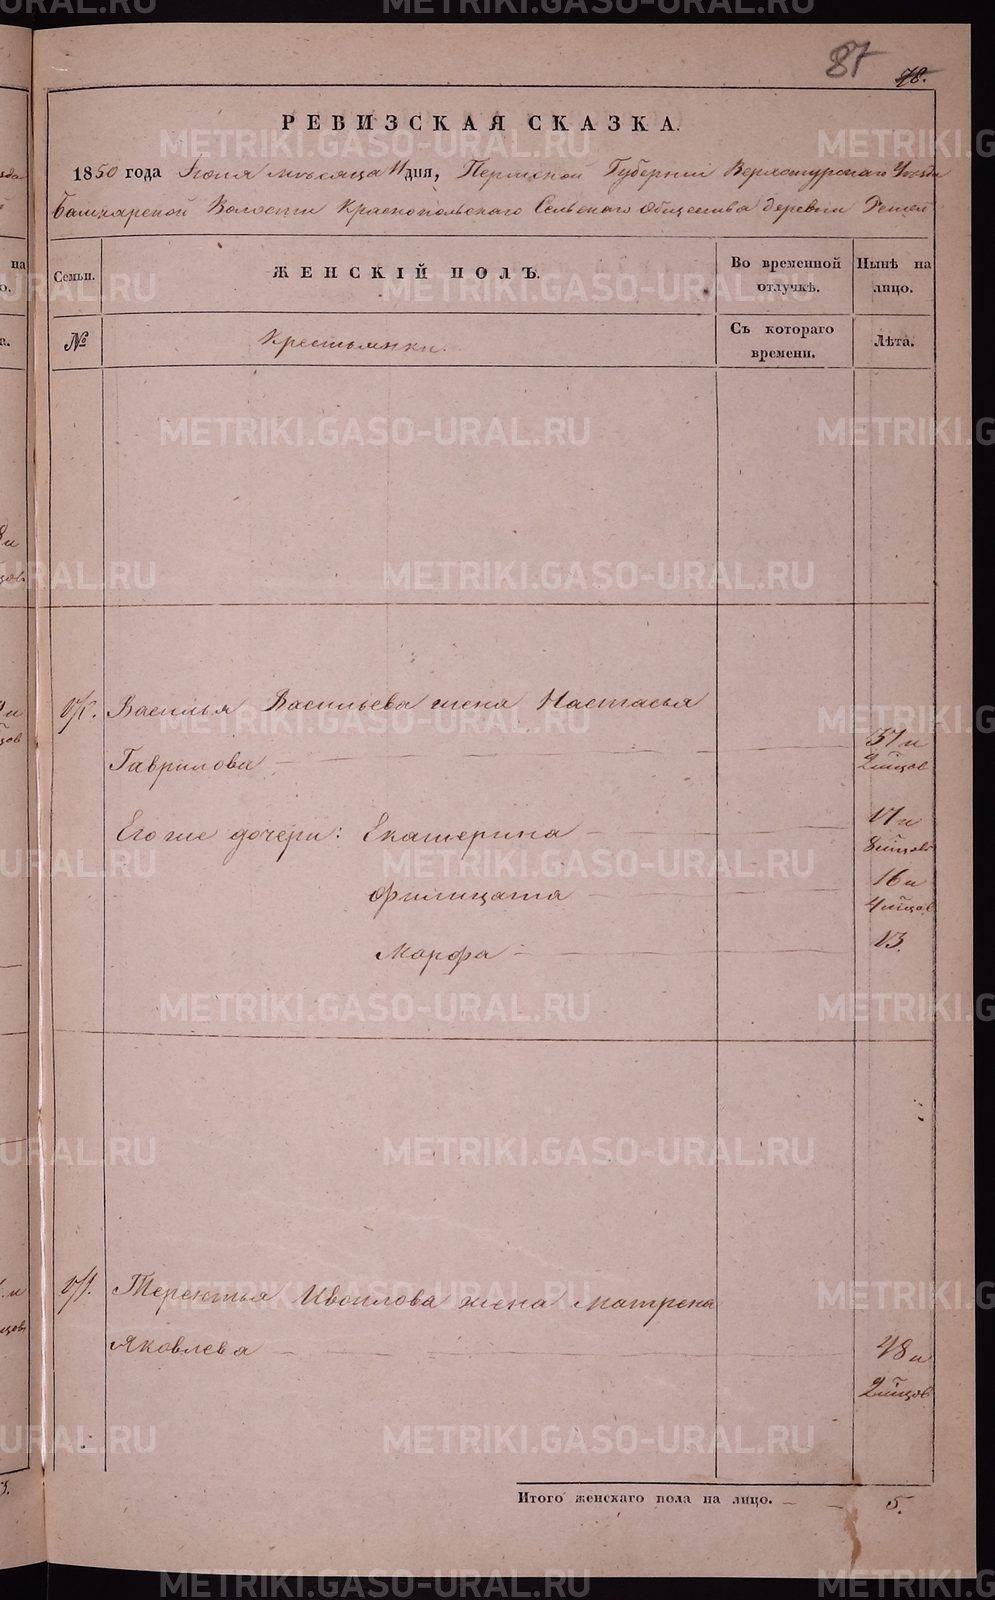 87
78.
РЕВИЗСКАЯ СКАЗКА.
1850 года Іюля мѣсяца 11 дня, Пермской Губерніи Верхотурскаго Уѣзда
Башкарской Волости Краснопольскаго Сельскаго Общества деревни
Семьи. ЖЕНСКІЙ ПОЛЪ. Во временной отлучкѣ. Нынѣ на лицо.
№ Крестьянки. Съ котораго времени. Лѣта.
Василья Васильева жена Настасья
Гаврилова 37 и 2 мѣсцов
Его же дочери: Екатерина 17 и 8 мѣсцов
Филицата 16 и 4 мѣсцов
Марфа 13.
Терентья Ивойлова жена Матрена
Яковлева 48 и 2 мѣсцов
Итого женскаго пола на лицо. 5.
METRIKI.GASO-URAL.RU